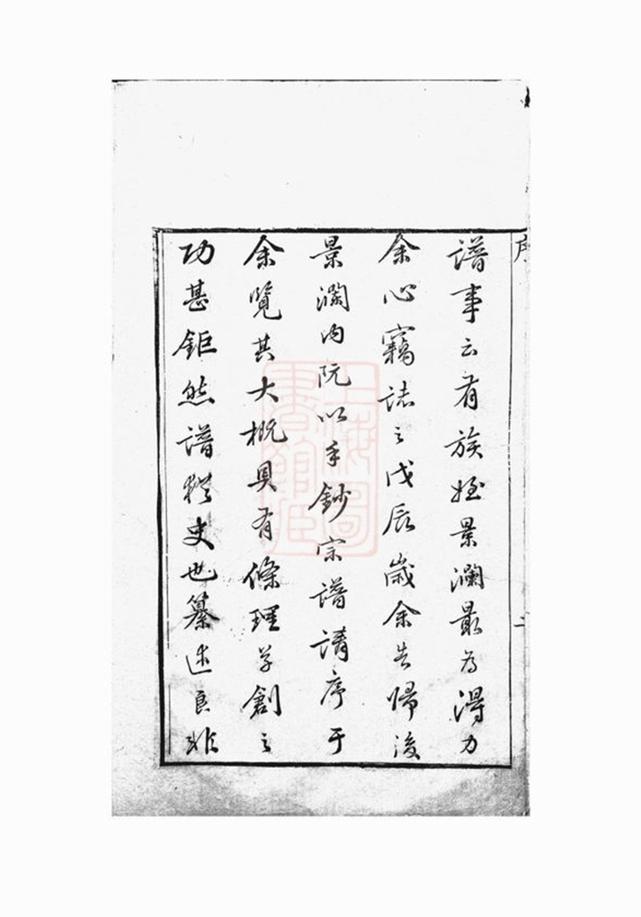 序
譜事云有族姪景瀾最為得力
余心竊誌之戊辰歲余告歸後
景瀾内阮以手鈔宗譜請序于
余覽其大概具有條理草創之
功甚鉅然譜猶史也纂述良非
上海圖書館藏